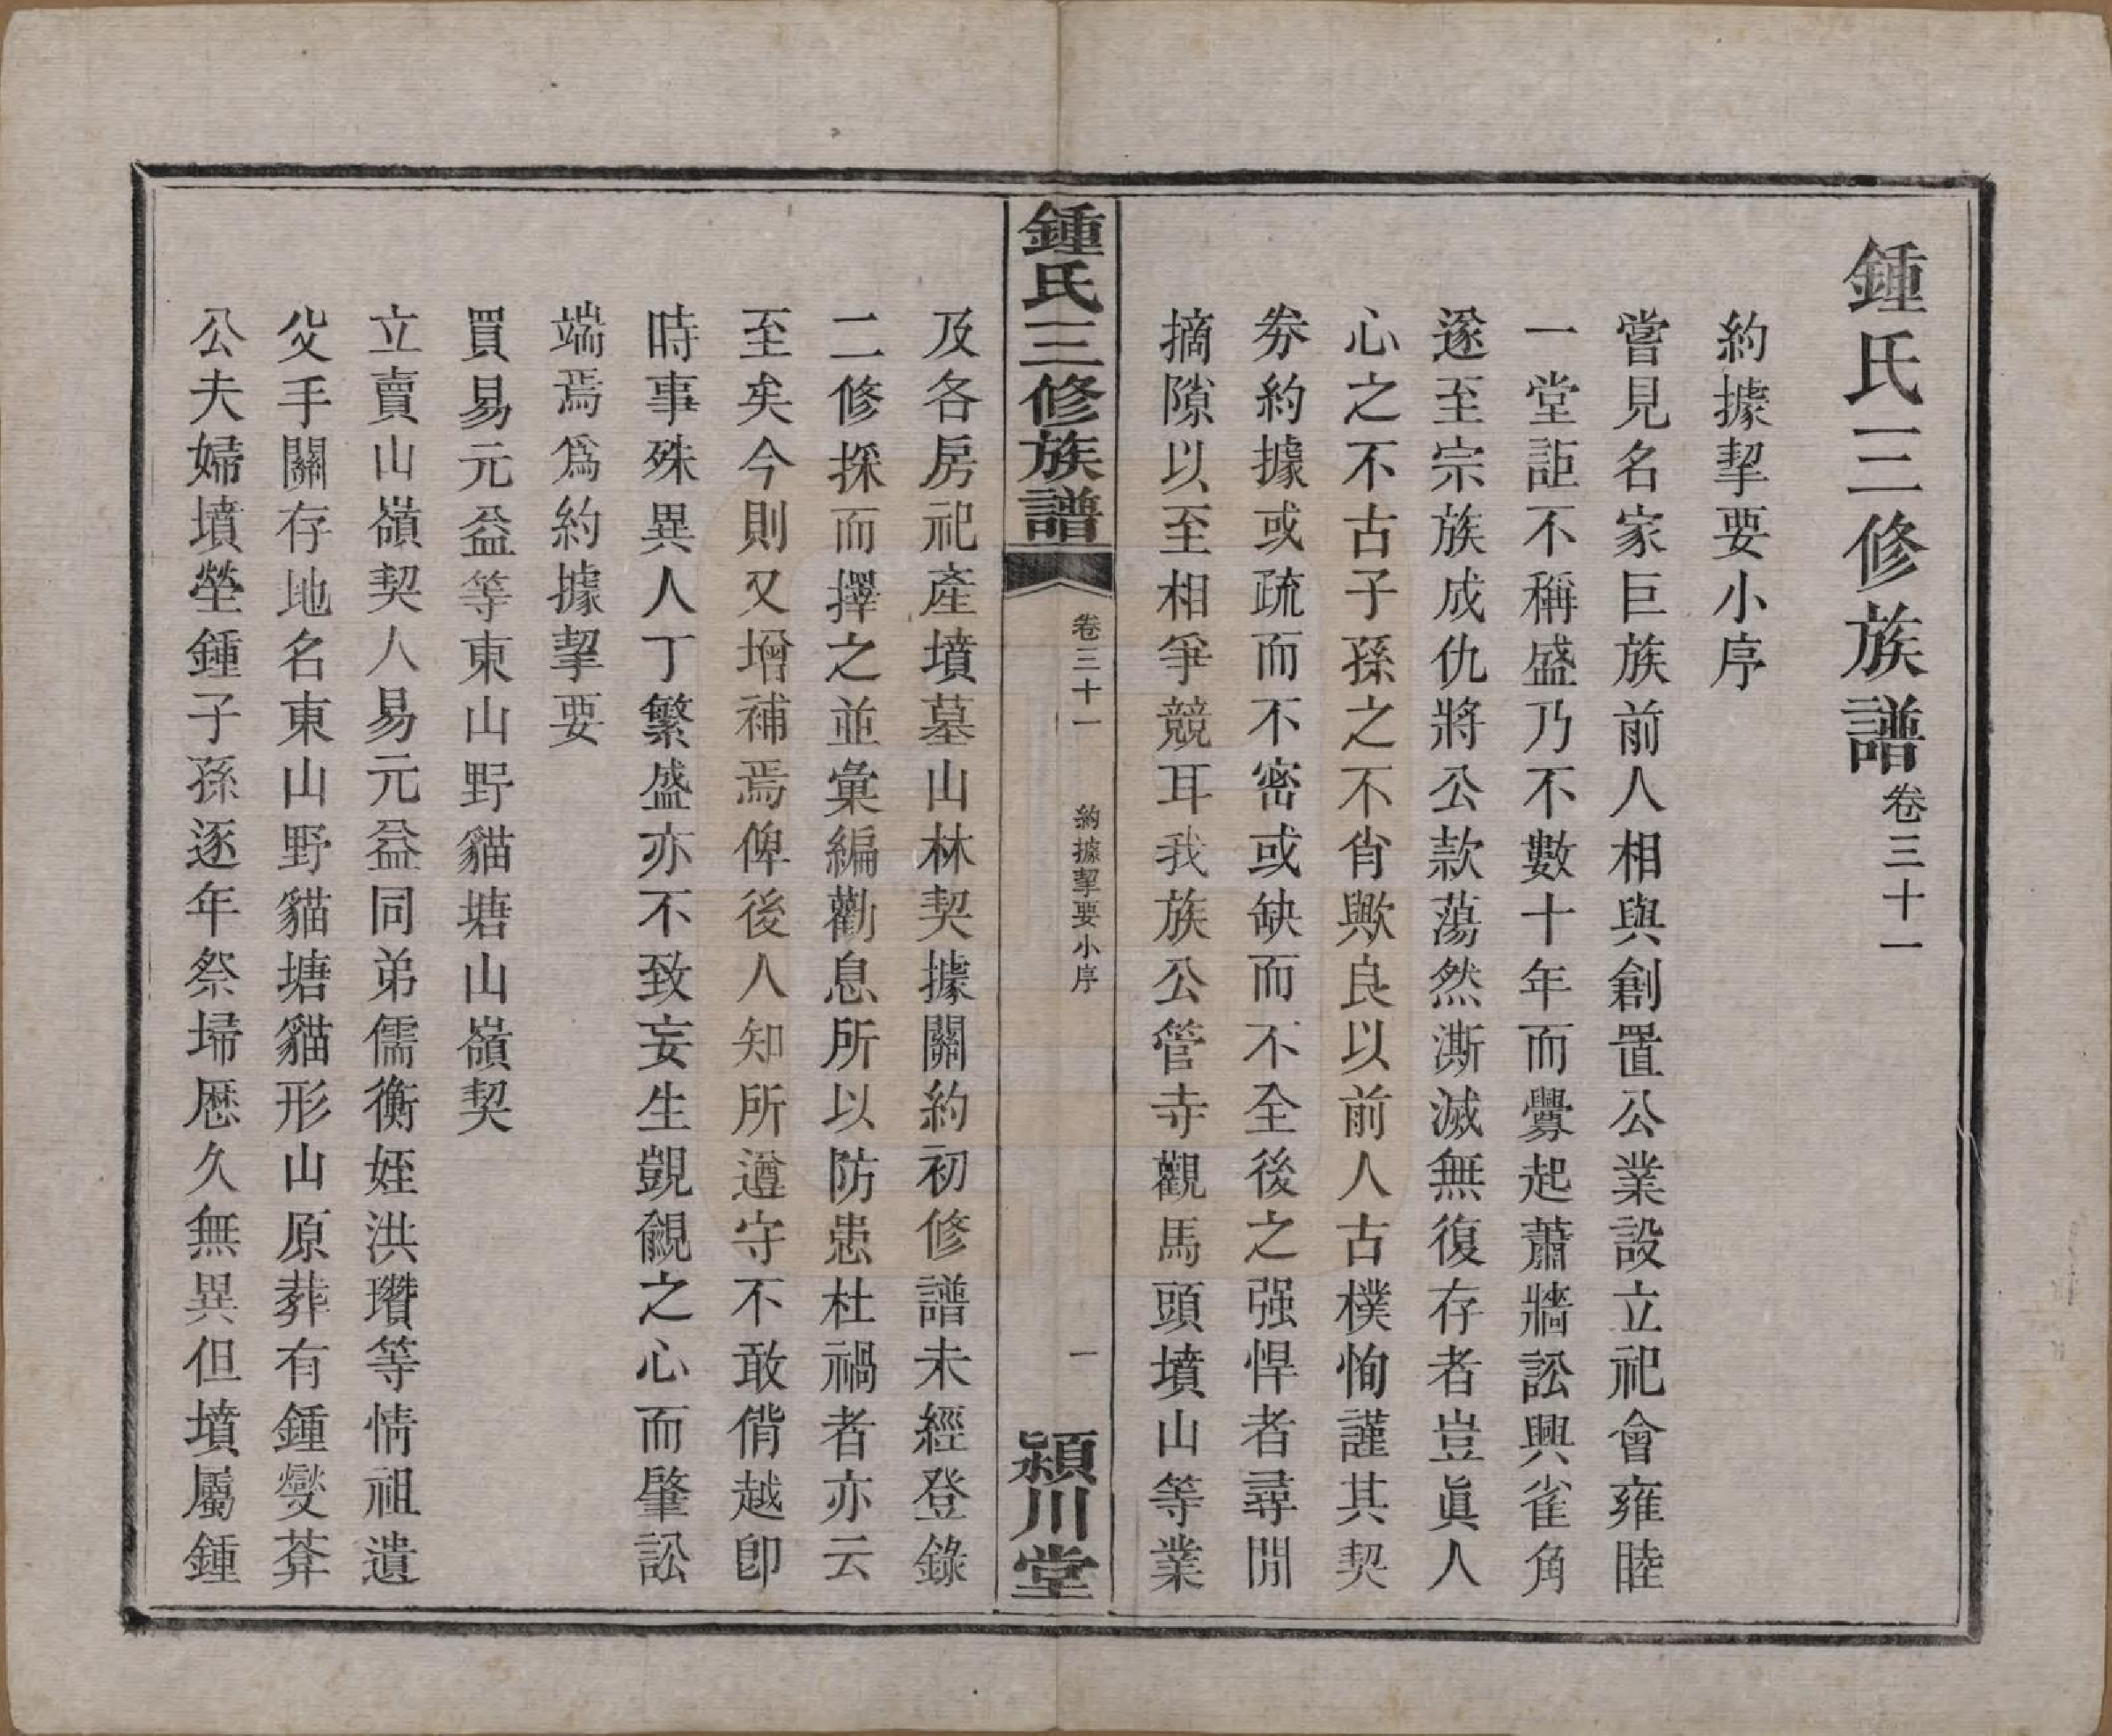 鍾氏三修族譜卷三十一
約據挈要小序
嘗見名家巨族前人相與創置公業設立祀會雍睦
一堂詎不稱盛乃不數十年而釁起蕭牆訟興雀角
遂至宗族成仇將公款蕩然澌滅無復存者豈眞人
心之不古子孫之不肖歟良以前人古樸恂謹其契
券約據或疏而不密或缺而不全後之强悍者尋閒
摘隙以至相爭競耳我族公管寺觀馬頭墳山等業
鍾氏三修族譜
卷三十一
約據挈要小序
一
潁川堂
及各房祀產墳墓山林契據關約初修譜未經登錄
二修採而擇之並彙編勸息所以防患杜禍者亦云
至矣今則又增補焉俾後人知所遵守不敢偕越卽
時事殊異人丁繁盛亦不致妄生覬覦之心而肇訟
端焉爲約據挈要
買易元益等東山野貓塘山嶺契
立賣山嶺契人易元益同弟儒衡姪洪瓚等情祖遺
父手關存地名東山野貓塘貓形山原葬有鍾燮莽
公夫婦墳塋鍾子孫逐年祭埽歷久無異但墳屬鍾